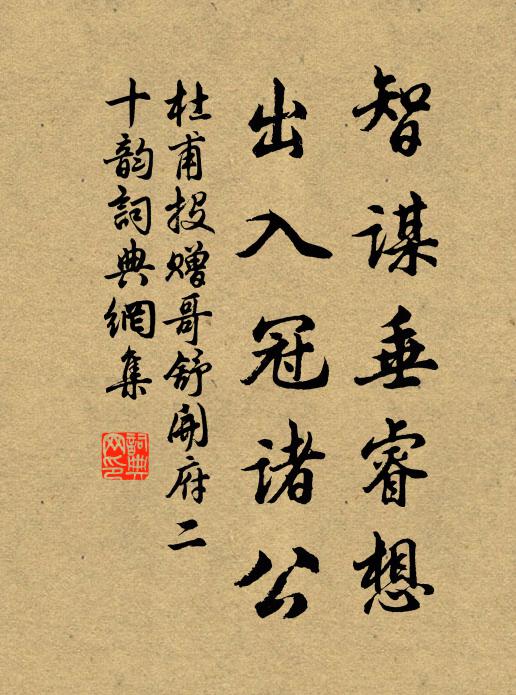 智謀垂睿想
出入冠諸公
杜甫投赠哥舒開府二
十韵詞典網集
詞典网印